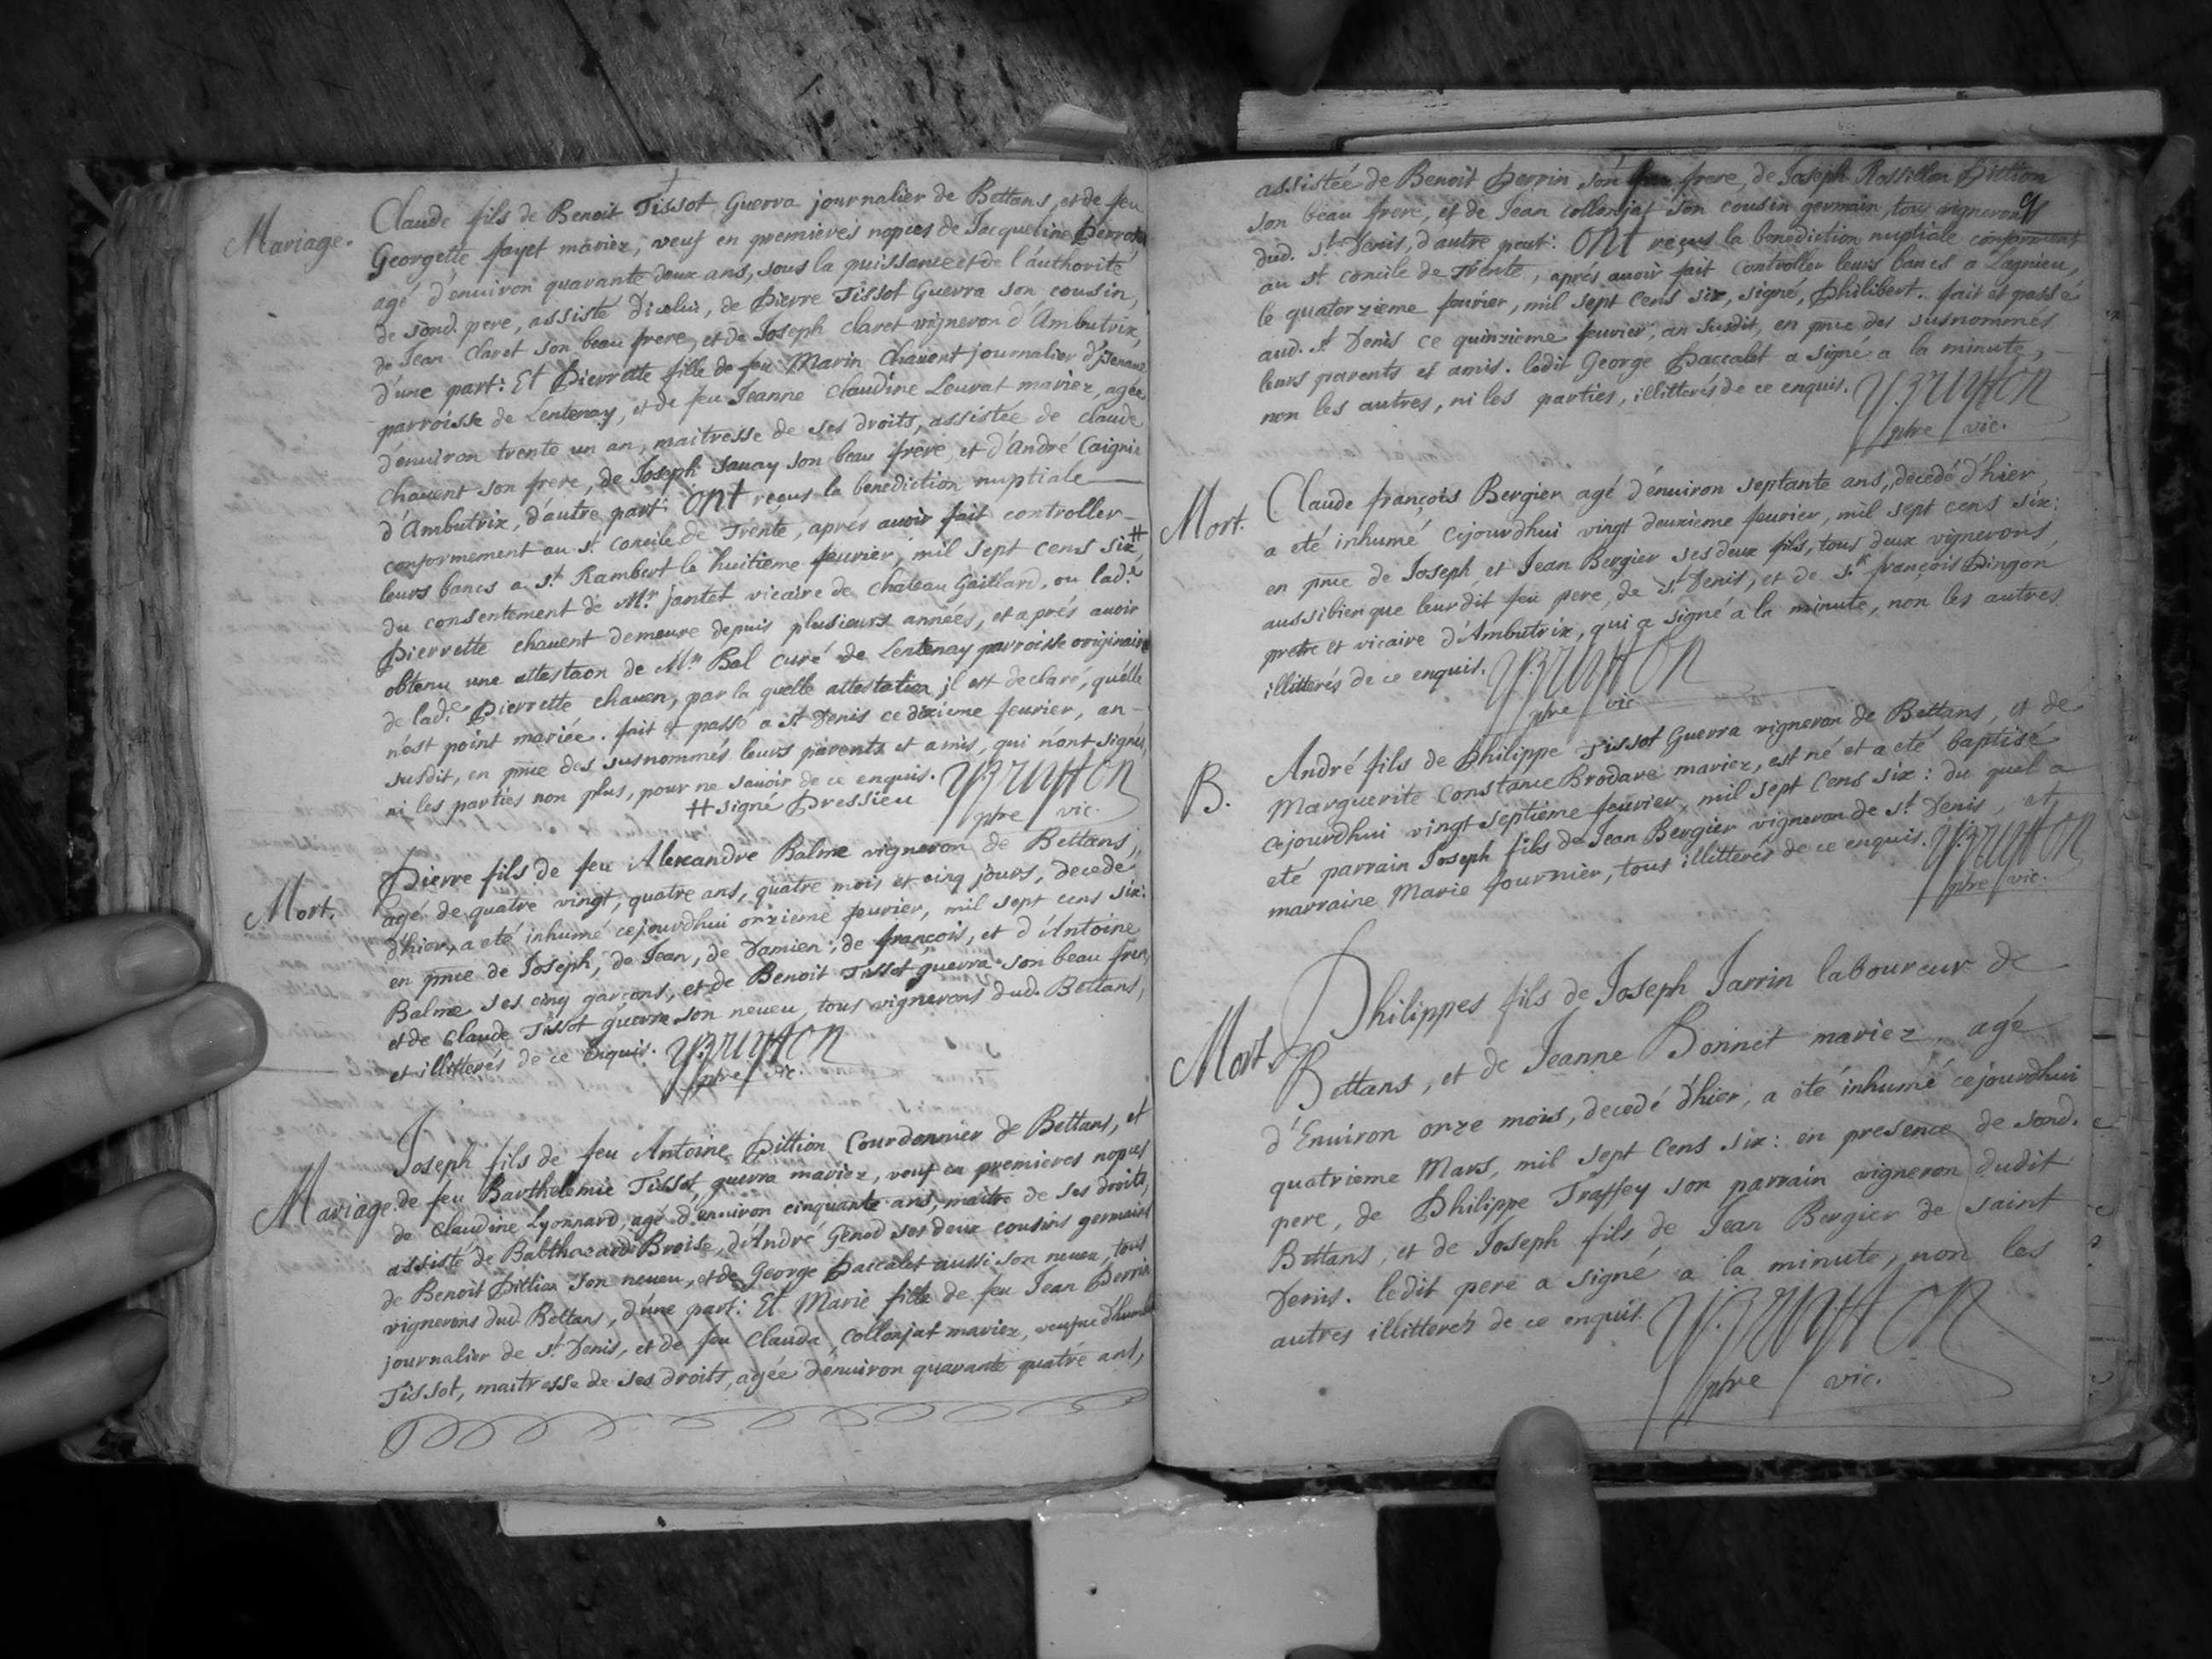 Mariage.
Claude fils de Benoit Tissot Guerra journalier de Bettans, et de feu
Georgette fayet mariez, veuf en premieres nopces de Jacqueline
agé d'enuiron quarante deux ans, sous la puissance et de l'authorité
de sond. pere, assisté d'icelui, de Pierre Tissot Guerra son cousin,
de Jean Claret son beau frere, et de Joseph claret vigneron d'Ambutrix,
d'une part: Et Pierrette fille de feu Marin Chauent journalier
parroisse de Lentenay, et de feu Jeanne Claudine Louvat mariez, agée
d'enuiron trente un an, maitresse de ses droits, assistée de claude
chauent son frere, de Joseph sauay son beau frere, et d'André
d'Ambutrix, d'autre part: ont reçus la benediction nuptiale
conformement au st. concile de Trente, aprés auoir fait controller
leurs bancs a st. Rambert le huitieme feurier, mil sept cens six #,
du consentement de Mr. jantet vicaire de chateau Gaillard, ou lad.e
Pierrette chauent demeure depuis plusieurs années, et aprés auoir
obtenu une attestaon de Mr. Bal curé de Lentenay parroisse originaire
de lad.e Pierrette chauen, par la quelle attestation jl est declaré, qu'elle
n'est point mariée. fait et passé a st Denis ce dixieme feurier, an
susdit, en pnce des susnommés leurs parents et amis, qui n'ont signés,
ni les parties non plus, pour ne sauoir de ce enquis.
# signé Pressieu
ptre vic.
Mort.
Pierre fils de feu Alexandre Balme vigneron de Bettans,
agé de quatre vingt, quatre ans, quatre mois et cinq jours, decedé
d'hier, a eté inhumé cejourdhui onzieme feurier, mil sept cens six:
en pnce de Joseph, de Jean, de Damien, de françois, et d'Antoine
Balme ses cinq garçons, et de Benoit Tissot guerra son beau frere,
et de Claude Tissot guerra son neueu, tous vignerons dud. Bettans,
et illitterés de ce enquis.
ptre vic.
Mariage.
Joseph fils de feu Antoine Pittion Courdonnier de Bettans, et
de feu Barthelemie Tissot guerra mariez, veuf en premieres nopces
de Claudine Lyonnard, agé d'enuiron cinquante ans, maitre de ses droits,
assisté de Balthazard Broise, d'André Genod ses deux cousins germains
de Benoit Pittion son neueu, et de George Paccalet aussi son neueu, tous
vignerons dud. Bettans, d'une part: Et Marie fille de feu Jean Perrin
journalier de st. Denis, et de feu Clauda Collonjat mariez, veufue
Tissot, maitresse de ses droits, agée d'enuiron quarante quatre ans,
assistée de Benoit Perrin son frere, de Joseph Rossillon Pittion
son beau frere, et de Jean collonjat son cousin germain, tous vignerons
dud. st. Denis, d'autre part: ont reçus la benediction nuptiale conforment
au st. concile de Trente, aprés auoir fait controller leurs bancs a Lagnieu,
le quatorzieme feurier, mil sept cens six, signé, Philibert. fait et passé
aud. st. Denis ce quinzieme feurier, an susdit, en pnce des susnommés
leurs parents et amis. ledit George Paccalet a signé a la minute,
non les autres, ni les parties, illitterés de ce enquis.
ptre vic.
Mort.
Claude françois Bergier agé d'enuiron septante ans, decedé d'hier
a eté inhumé cejourdhui vingt deuxieme feurier, mil sept cens six:
en pnce de Joseph et Jean Bergier ses deux fils, tous deux vignerons,
aussi bien que leur dit feu pere, de st. Denis, et de sr. françois Pingon
pretre et vicaire d'Ambutrix, qui a signé a la minute, non les autres
illitterés de ce enquis.
ptre vic
B.
André fils de Philippe Tissot Guerra vigneron de Bettans, et de
Marguerite Constance Brodare mariez, est né et a eté baptisé
cejourdhui vingt septieme feurier, mil sept cens six: du quel a
eté parrain Joseph fils de Jean Bergier vigneron de st. Denis, et
marraine Marie fournier, tous illitterés de ce enquis.
ptre vic.
Mort.
Philippes fils de Joseph Jarrin laboureur de
Bettans, et de Jeanne Bonnet mariez, agé
d'Enuiron onze mois, decedé d'hier, a eté inhumé cejourdhui
quatrieme Mars, mil sept Cens six: en presence de sond.
pere, de Philippe Traffey son parrain vigneron dudit
Bettans, et de Joseph fils de Jean Bergier de saint
Denis. ledit pere a signé a la minute, non les
autres illitterez de ce enquis.
ptre vic.